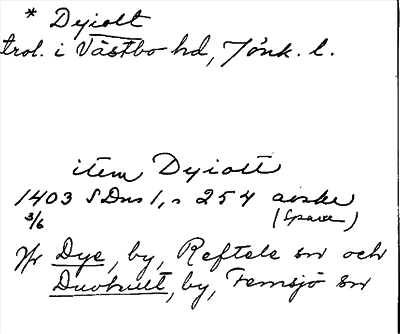 * Dyiolt
trol. i Västbo hd, Jönk. l.
item Dyiolt
1403 SDns 1, s 254 avskr
3/6 (Spara)
Jfr Dye, by, Reftele sn och
Duvhult, by, Femsjö sn